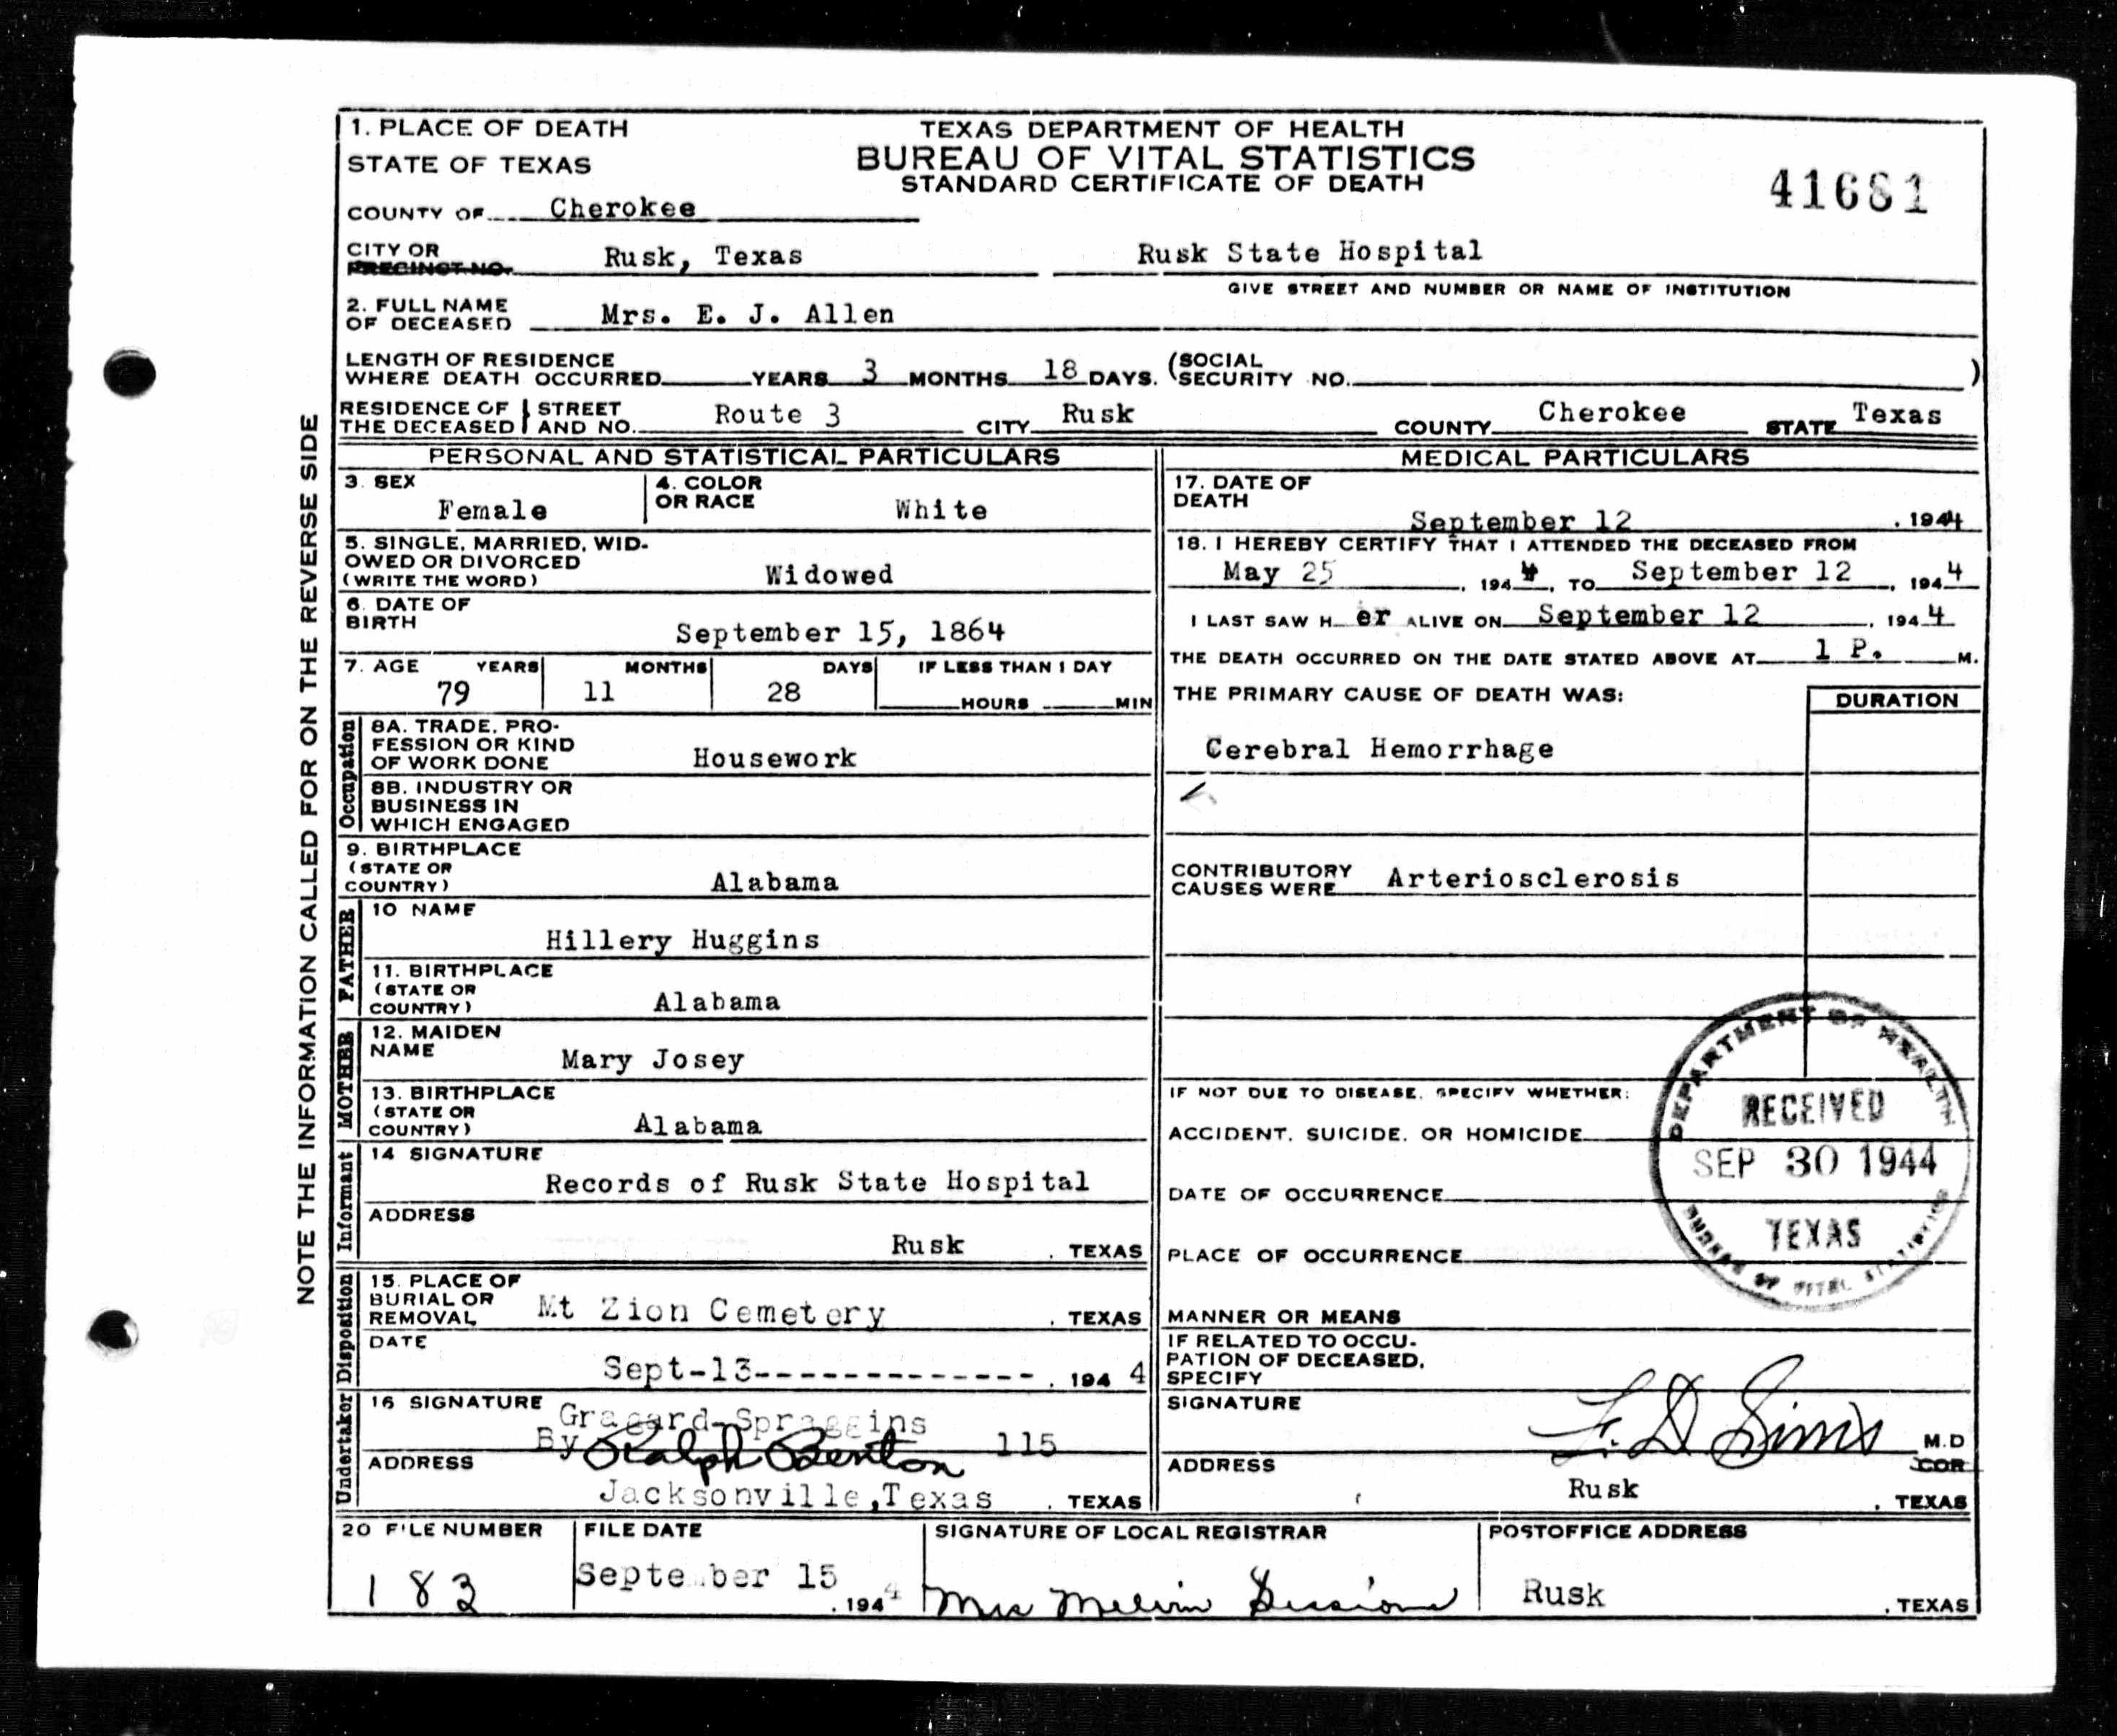 NOTE THE INFORMATION CALLED FOR ON THE REVERSE SIDE
1. PLACE OF DEATH
STATE OF TEXAS
COUNTY OF Cherokee
TEXAS DEPARTMENT OF HEALTH
BUREAU OF VITAL STATISTICS
STANDARD CERTIFICATE OF DEATH
41681
CITY OR
PRECINCT NO. Rusk, Texas Rusk State Hospital
GIVE STREET AND NUMBER OR NAME OF INSTITUTION
2. FULL NAME
OF DECEASED Mrs. E. J. Allen
LENGTH OF RESIDENCE
WHERE DEATH OCCURRED YEARS 3 MONTHS 18 DAYS. (SOCIAL
SECURITY NO. )
RESIDENCE OF THE DECEASED STREET AND NO. Route 3 CITY Rusk COUNTY Cherokee STATE Texas
PERSONAL AND STATISTICAL PARTICULARS
3. SEX
Female
4. COLOR
OR RACE White
5. SINGLE, MARRIED, WID-
OWED OR DIVORCED
(WRITE THE WORD) Widowed
6. DATE OF
BIRTH September 15, 1864
7. AGE YEARS MONTHS DAYS IF LESS THAN 1 DAY
79 11 28 HOURS MIN
Occupation
8A. TRADE, PRO-
FESSION OR KIND
OF WORK DONE Housework
8B. INDUSTRY OR
BUSINESS IN
WHICH ENGAGED
9. BIRTHPLACE
(STATE OR
COUNTRY) Alabama
FATHER
10 NAME
Hillery Huggins
11. BIRTHPLACE
(STATE OR
COUNTRY) Alabama
MOTHER
12. MAIDEN
NAME Mary Josey
13. BIRTHPLACE
(STATE OR
COUNTRY) Alabama
Informant
14 SIGNATURE
Records of Rusk State Hospital
ADDRESS
Rusk . TEXAS
Disposition
15. PLACE OF
BURIAL OR
REMOVAL Mt Zion Cemetery . TEXAS
DATE
Sept-13-------------- . 194 4
Undertaker
16 SIGNATURE Gragard-Spraggins
By Ralph Benton 115
ADDRESS
Jacksonville,Texas . TEXAS
MEDICAL PARTICULARS
17. DATE OF
DEATH
September 12 . 1944
18. I HEREBY CERTIFY THAT I ATTENDED THE DECEASED FROM
May 25 , 194 4, TO September 12 , 194 4
I LAST SAW H er ALIVE ON September 12 , 194 4
THE DEATH OCCURRED ON THE DATE STATED ABOVE AT 1 P. M.
THE PRIMARY CAUSE OF DEATH WAS: DURATION
Cerebral Hemorrhage
CONTRIBUTORY
CAUSES WERE Arteriosclerosis
IF NOT DUE TO DISEASE, SPECIFY WHETHER:
ACCIDENT, SUICIDE, OR HOMICIDE
DATE OF OCCURRENCE
PLACE OF OCCURRENCE
MANNER OR MEANS
IF RELATED TO OCCU-
PATION OF DECEASED,
SPECIFY
DEPARTMENT OF HEALTH
RECEIVED
SEP 30 1944
TEXAS
BUREAU OF VITAL STATISTICS
SIGNATURE F. D Sims M.D
COR
ADDRESS
Rusk . TEXAS
20 FILE NUMBER
183
FILE DATE
September 15 . 194 4
SIGNATURE OF LOCAL REGISTRAR
Mrs Melvin Sessions
POSTOFFICE ADDRESS
Rusk . TEXAS